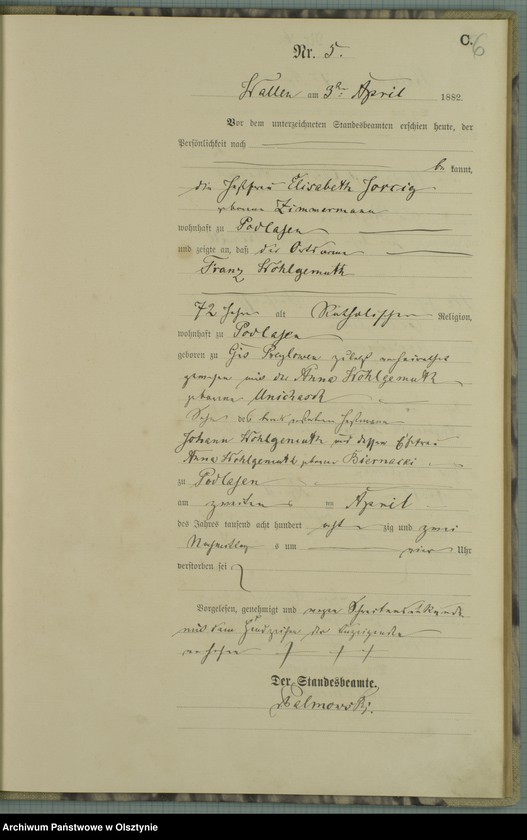 C. 6
Nr. 5.
Wallen am 3ten April 1882.
Vor dem unterzeichneten Standesbeamten erschien heute, der
Persönlichkeit nach
be kannt,
die Elisabeth Jorcig
geborene Zimmermann
wohnhaft zu Podlasen
und zeigte an, daß der Ortsarme
Franz Wohlgemuth
72 Jahre alt Katholischer Religion,
wohnhaft zu Podlasen
geboren zu zuletzt verheirathet
gewesen mit der Anna Wohlgemuth
geborene
Sohn des verstorbenen
Johann Wohlgemuth und dessen Ehefrau
Anna Wohlgemuth geborene Biernatzki
zu Podlasen
am zweiten April
des Jahres tausend acht hundert acht zig und zwei
Nachmittag s um vier Uhr
verstorben sei
Vorgelesen, genehmigt und wegen Schreibensunkunde
mit dem Handzeichen der Anzeigenden
versehen + + +
Der Standesbeamte.
Archiwum Państwowe w Olsztynie